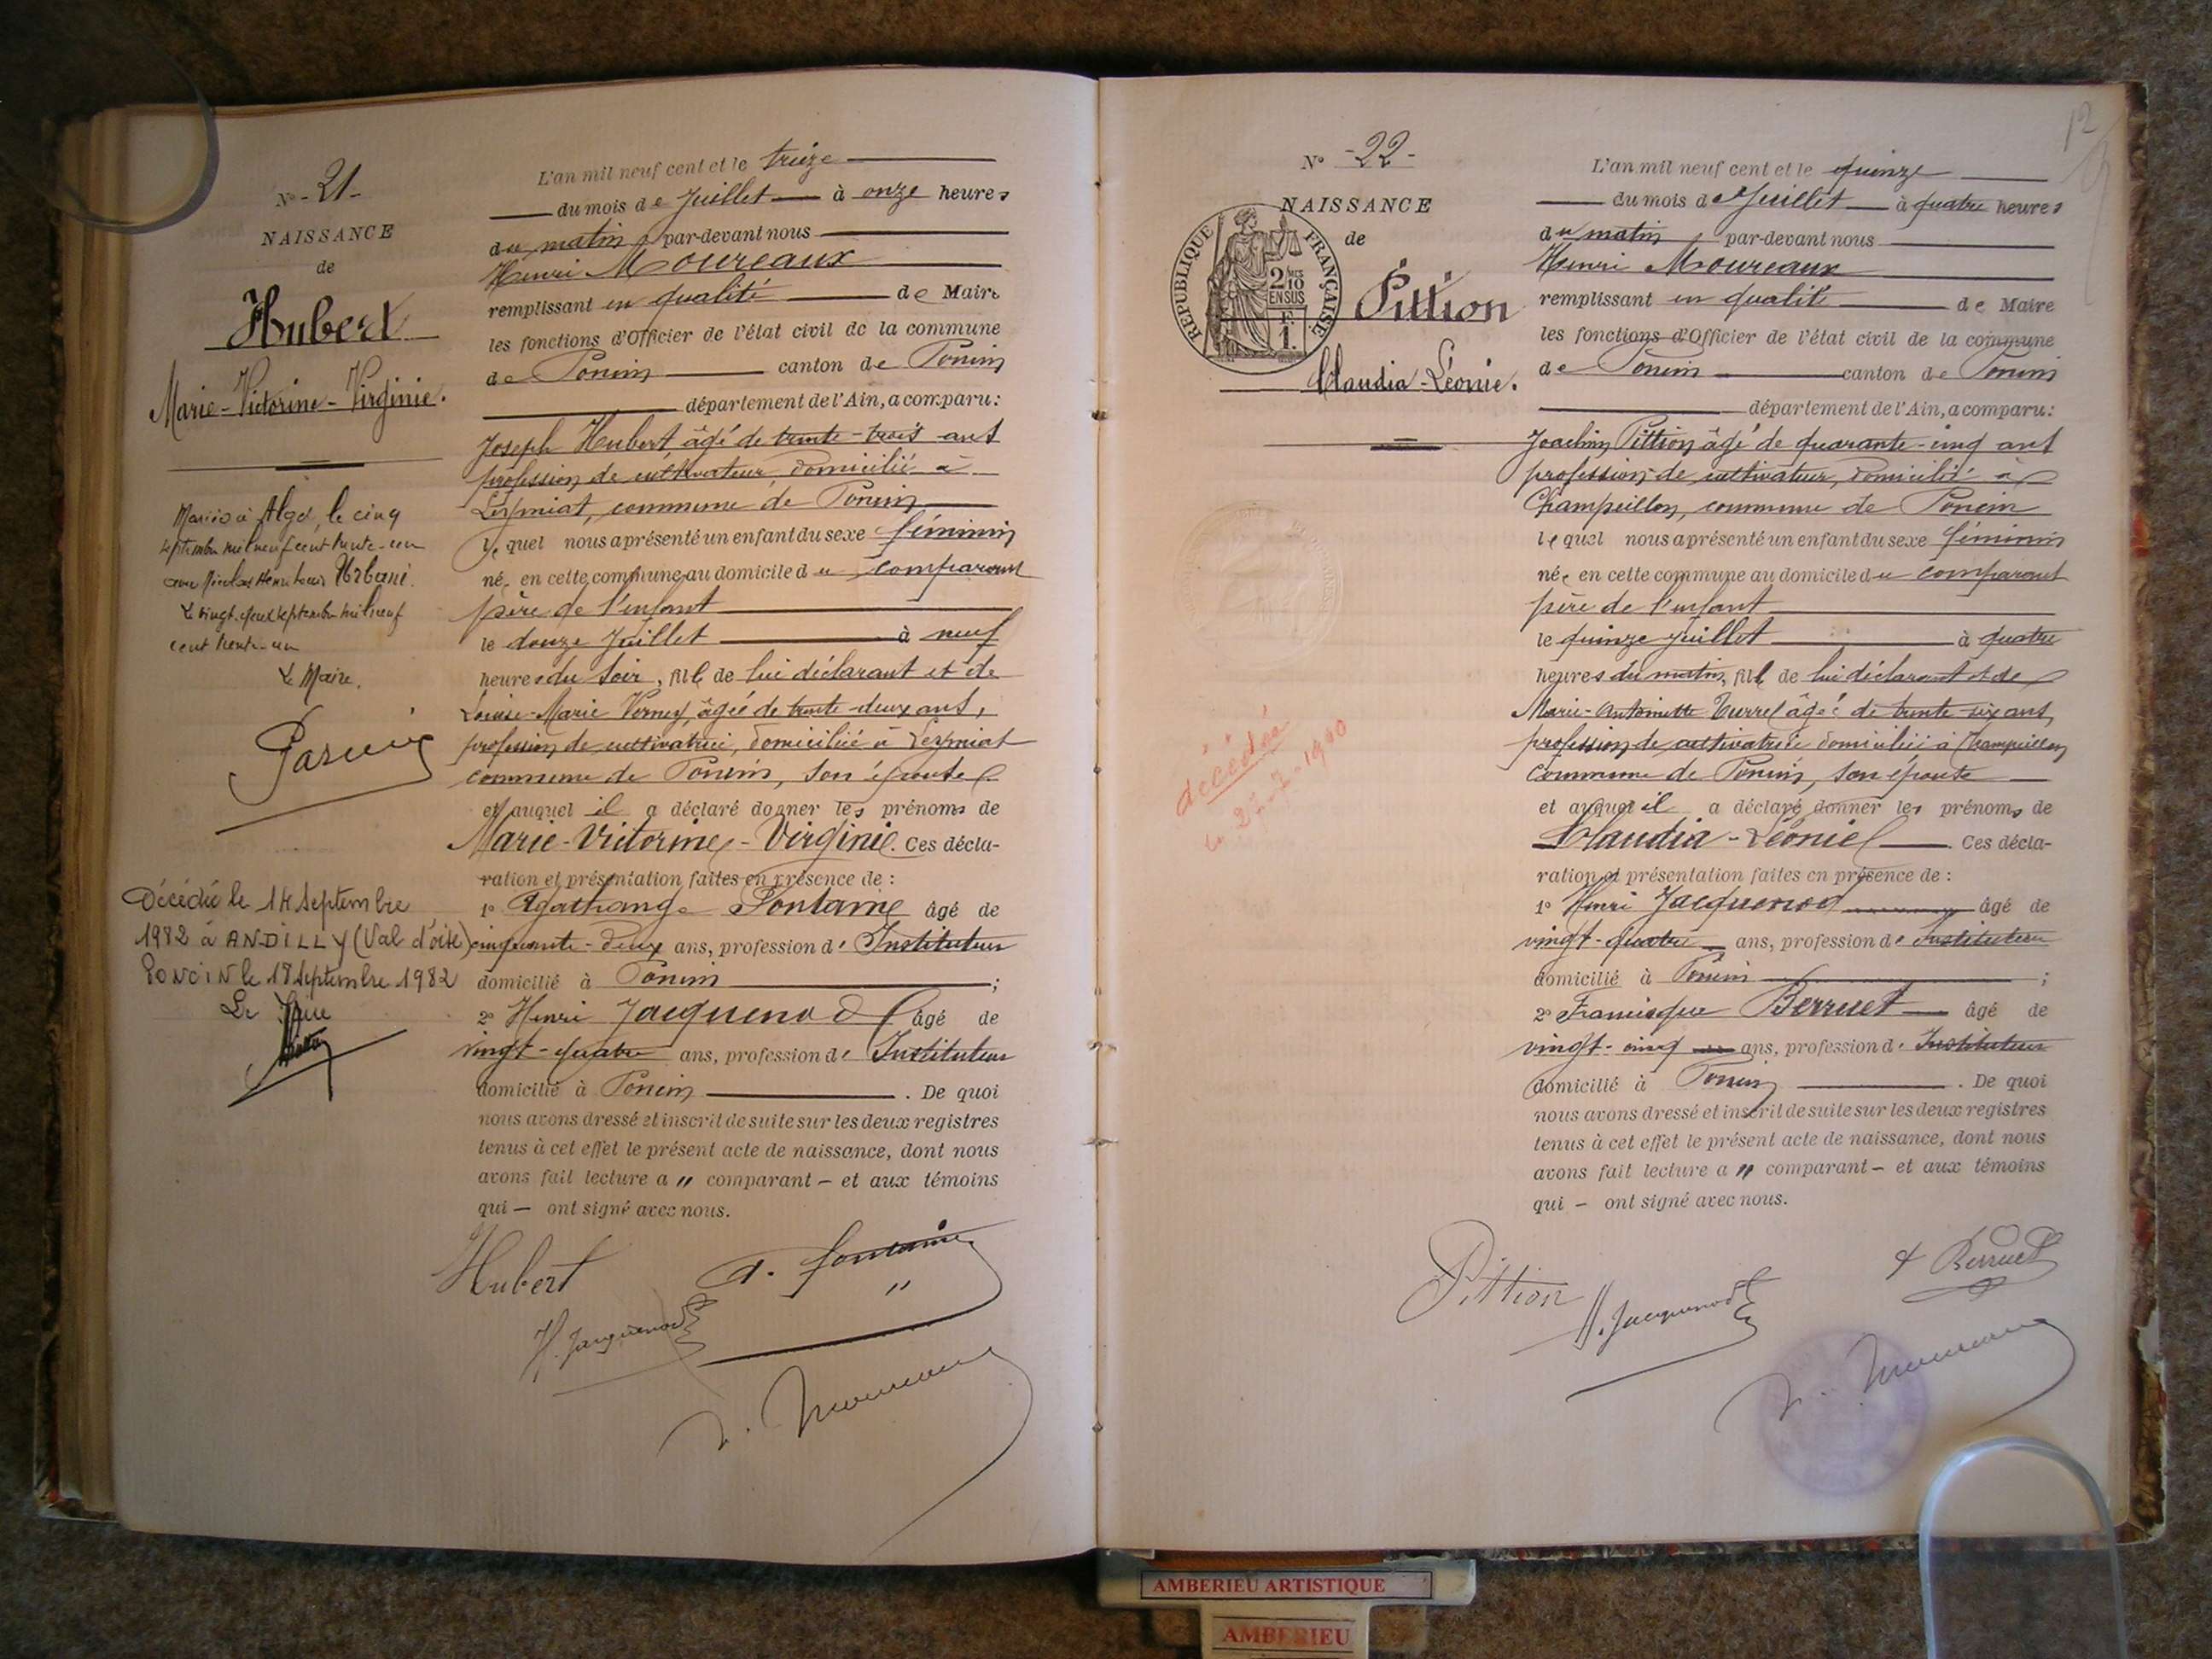 N° - 21 -
NAISSANCE
de
Hubert
Marie-Victorine-Virginie.
Mariée à Alger, le cinq
septembre mil neuf cent trente-un
avec Nicolas Henri Louis Urbani.
Le vingt-deux septembre mil neuf
cent trente-un
Le Maire,
Décédée le 14 Septembre
1982 à ANDILLY (Val d'oise)
PONCIN le 18 Septembre 1982
Le Maire
L'an mil neuf cent et le treize
du mois de Juillet à onze heures
du matin, par-devant nous
Henri Moureaux
remplissant en qualité de Maire
les fonctions d'Officier de l'état civil de la commune
de Poncin canton de Poncin
département de l'Ain, a comparu:
Joseph Hubert, âgé de trente-trois ans
profession de cultivateur, domicilié à
Leymiat, commune de Poncin
lequel nous a présenté un enfant du sexe féminin
née en cette commune au domicile du comparant
père de l'enfant
le douze Juillet à neuf
heures du soir, fille de lui déclarant et de
Louise-Marie Verney, âgée de trente-deux ans,
profession de cultivatrice, domiciliée à Leymiat
commune de Poncin, son épouse
et auquel il a déclaré donner les prénoms de
Marie-Victorine-Virginie. Ces décla-
ration et présentation faites en présence de :
1° Agathange Fontaine âgé de
cinquante-deux ans, profession d'Instituteur
domicilié à Poncin ;
2° Henri Jacquenod âgé de
vingt-quatre ans, profession d'Instituteur
domicilié à Poncin . De quoi
nous avons dressé et inscrit de suite sur les deux registres
tenus à cet effet le présent acte de naissance, dont nous
avons fait lecture a " comparant - et aux témoins
qui - ont signé avec nous.
Hubert
A. fontaine
H. Jacquenod
12
N° - 22 -
NAISSANCE
de
REPUBLIQUE FRANÇAISE
2/10
EN SUS
F.
1.
Pittion
Claudia-Léonie.
décédée
L'an mil neuf cent et le quinze
du mois de Juillet à quatre heures
du matin, par-devant nous
Henri Moureaux
remplissant en qualité de Maire
les fonctions d'Officier de l'état civil de la commune
de Poncin canton de Poncin
département de l'Ain, a comparu:
Joachim Pittion âgé de quarante-cinq ans
profession de cultivateur, domicilié à
Champeillon, commune de Poncin
lequel nous a présenté un enfant du sexe féminin
née en cette commune au domicile du comparant
père de l'enfant
le quinze Juillet à quatre
heures du matin, fille de lui déclarant et de
Marie-Antoinette Turrel âgée de trente six ans,
profession de cultivatrice domiciliée à Champeillon
commune de Poncin, son épouse
et auquel il a déclaré donner les prénoms de
Claudia-Léonie Ces décla-
ration et présentation faites en présence de :
1° Henri Jacquenod âgé de
vingt-quatre ans, profession d'Instituteur
domicilié à Poncin ;
2° Francisque Berruet âgé de
vingt-cinq ans, profession d'Instituteur
domicilié à Poncin . De quoi
nous avons dressé et inscrit de suite sur les deux registres
tenus à cet effet le présent acte de naissance, dont nous
avons fait lecture a " comparant - et aux témoins
qui - ont signé avec nous.
Berruet
Pittion
H. Jacquenod
AMBERIEU ARTISTIQUE
AMBERIEU